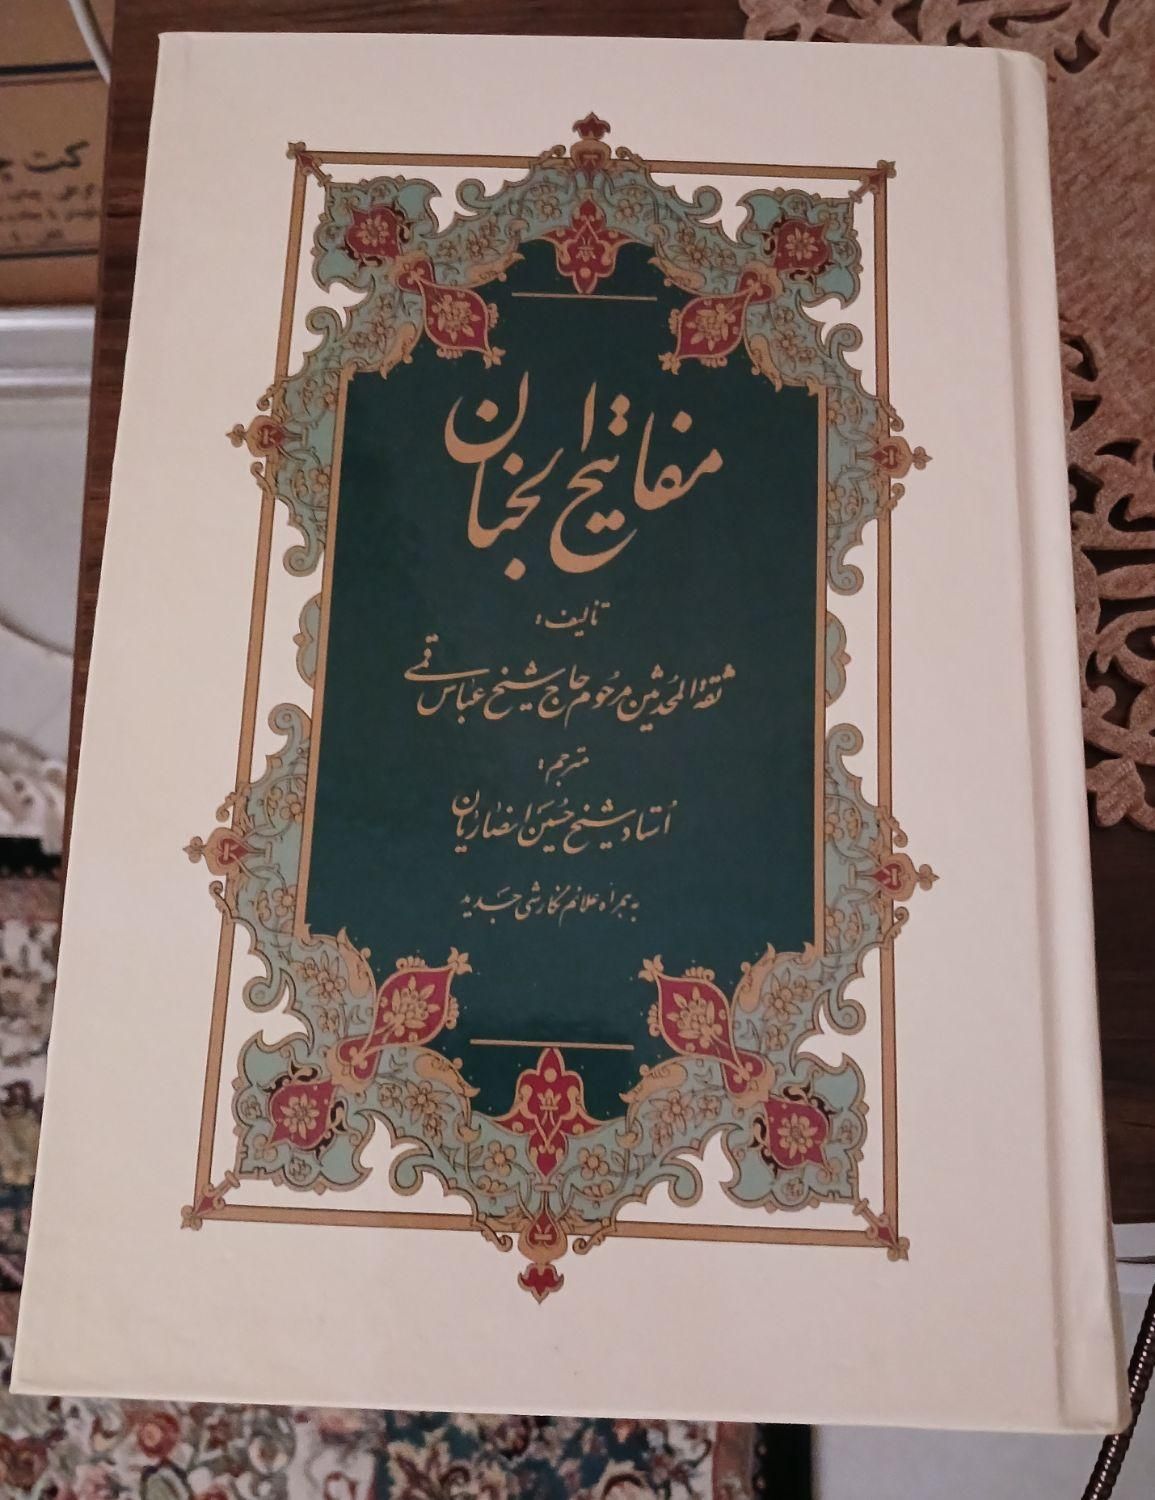 مفاتیح الجنان
تألیف:
ثقة المحدثین مرحوم حاج شیخ عباس قمی
مترجم:
اُستاد شیخ حُسَین انصاریان
به همراه علائم نگارشی جَدید
کت